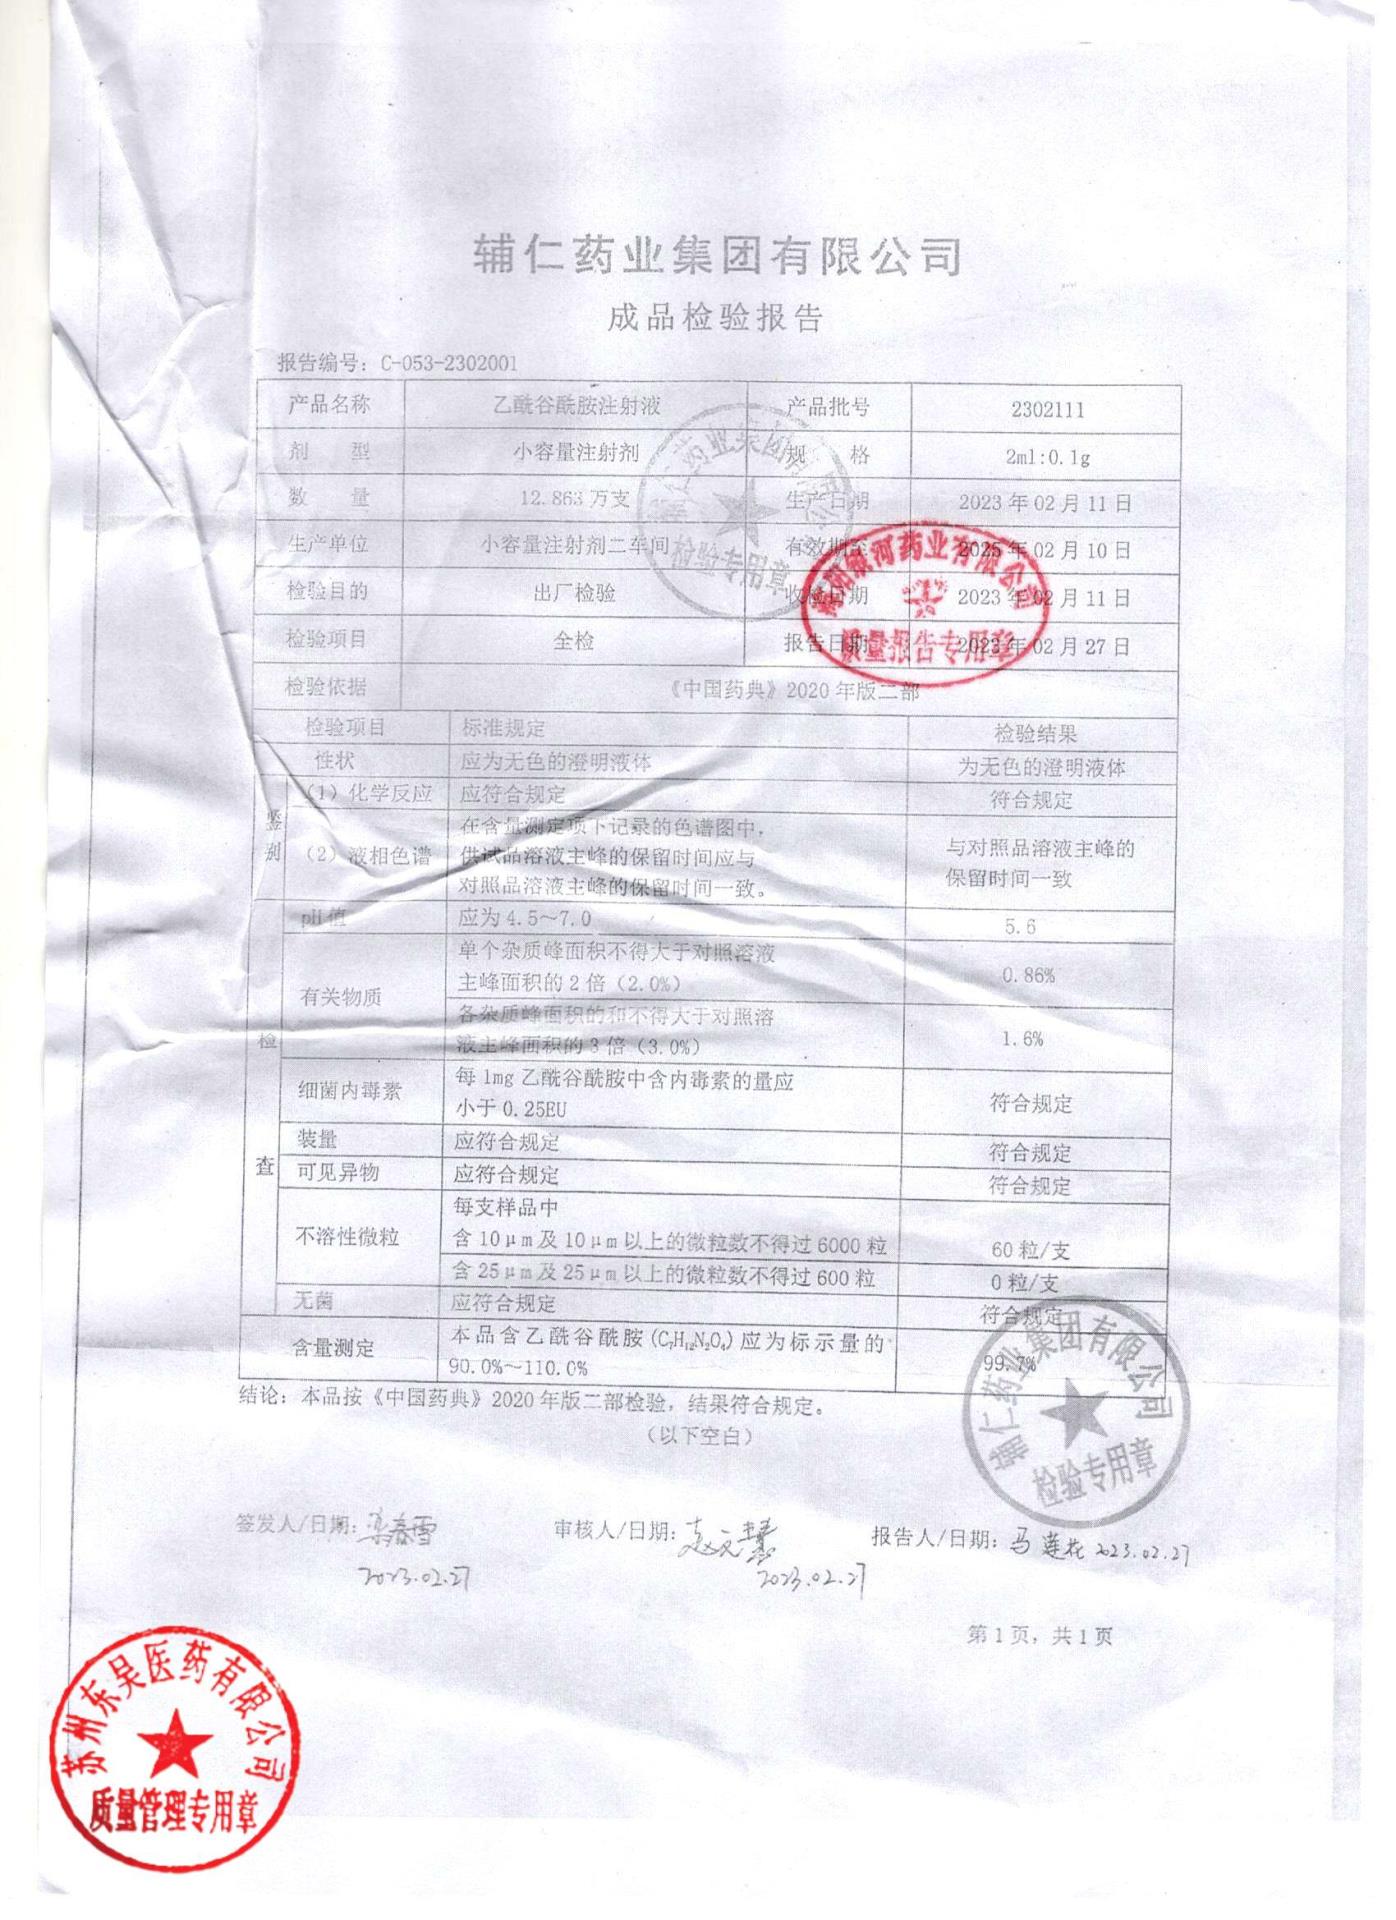 辅仁药业集团有限公司
成品检验报告
报告编号：C-053-2302001
产品名称 乙酰谷酰胺注射液 产品批号 2302111
剂 型 小容量注射剂 规 格 2ml:0.1g
数 量 12.863万支 生产日期 2023年02月11日
生产单位 小容量注射剂二车间 有效期至 2025年02月10日
检验目的 出厂检验 收检日期 2023年02月11日
检验项目 全检 报告日期 2023年02月27日
检验依据 《中国药典》2020年版二部
检验项目 标准规定 检验结果
性状 应为无色的澄明液体 为无色的澄明液体
鉴别
（1）化学反应 应符合规定 符合规定
（2）液相色谱
在含量测定项下记录的色谱图中，
供试品溶液主峰的保留时间应与
对照品溶液主峰的保留时间一致。
与对照品溶液主峰的
保留时间一致
检查
pH值 应为4.5～7.0 5.6
有关物质
单个杂质峰面积不得大于对照溶液
主峰面积的2倍（2.0%）
0.86%
各杂质峰面积的和不得大于对照溶
液主峰面积的3倍（3.0%）
1.6%
细菌内毒素
每1mg乙酰谷酰胺中含内毒素的量应
小于0.25EU
符合规定
装量 应符合规定 符合规定
可见异物 应符合规定 符合规定
不溶性微粒
每支样品中
含10μm及10μm以上的微粒数不得过6000粒 60粒/支
含25μm及25μm以上的微粒数不得过600粒 0粒/支
无菌 应符合规定 符合规定
含量测定
本品含乙酰谷酰胺(C₇H₁₂N₂O₄)应为标示量的
90.0%～110.0%
99.7%
结论：本品按《中国药典》2020年版二部检验，结果符合规定。
（以下空白）
签发人/日期： 春雪
2023.02.27
审核人/日期：赵元慧
2023.02.27
报告人/日期：马莲花 2023.02.27
第1页，共1页
辅仁药业集团有限公司
检验专用章
银河药业有限公司
质量报告专用章
辅仁药业集团有限公司
检验专用章
苏州东吴医药有限公司
质量管理专用章